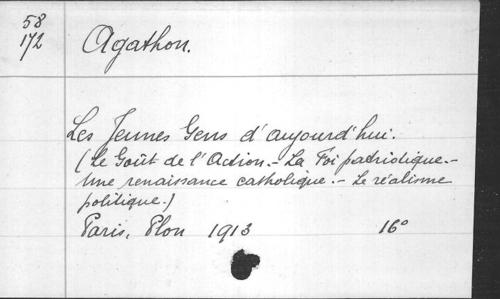 58
172
Agathon.
Les Jeunes Gens d'aujourd'hui.
(Le Goût de l'Action.- La Foi patriotique.-
Une renaissance catholique.- Le réalisme
politique.)
Paris, Plon 1913 16°